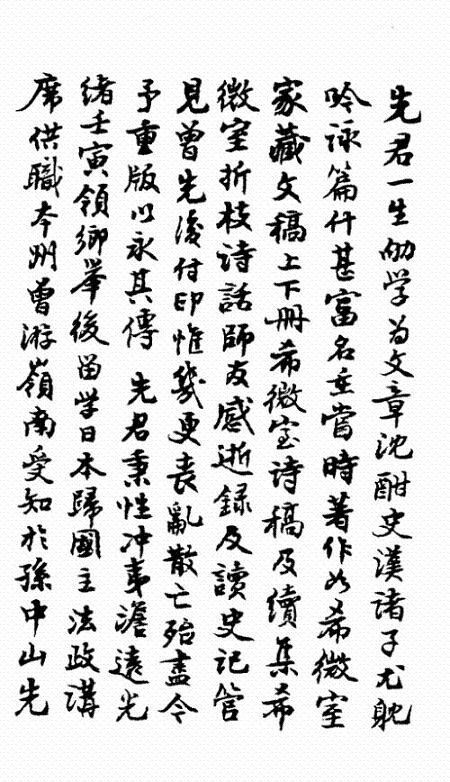 先君一生劬学为文章沈酣史汉诸子尤躭
吟詠篇什甚富名垂當時著作如希微室
家藏文稿上下冊希微室诗稿及續集希
微室折枝诗話師友感逝録及讀史记管
見曾先後付印惟幾更丧亂散亡殆盡今
予重版以永其傳 先君秉性冲夷澹遠光
緒壬寅領鄉舉後留学日本歸國主法政講
席供職本州曾游嶺南受知於孫中山先